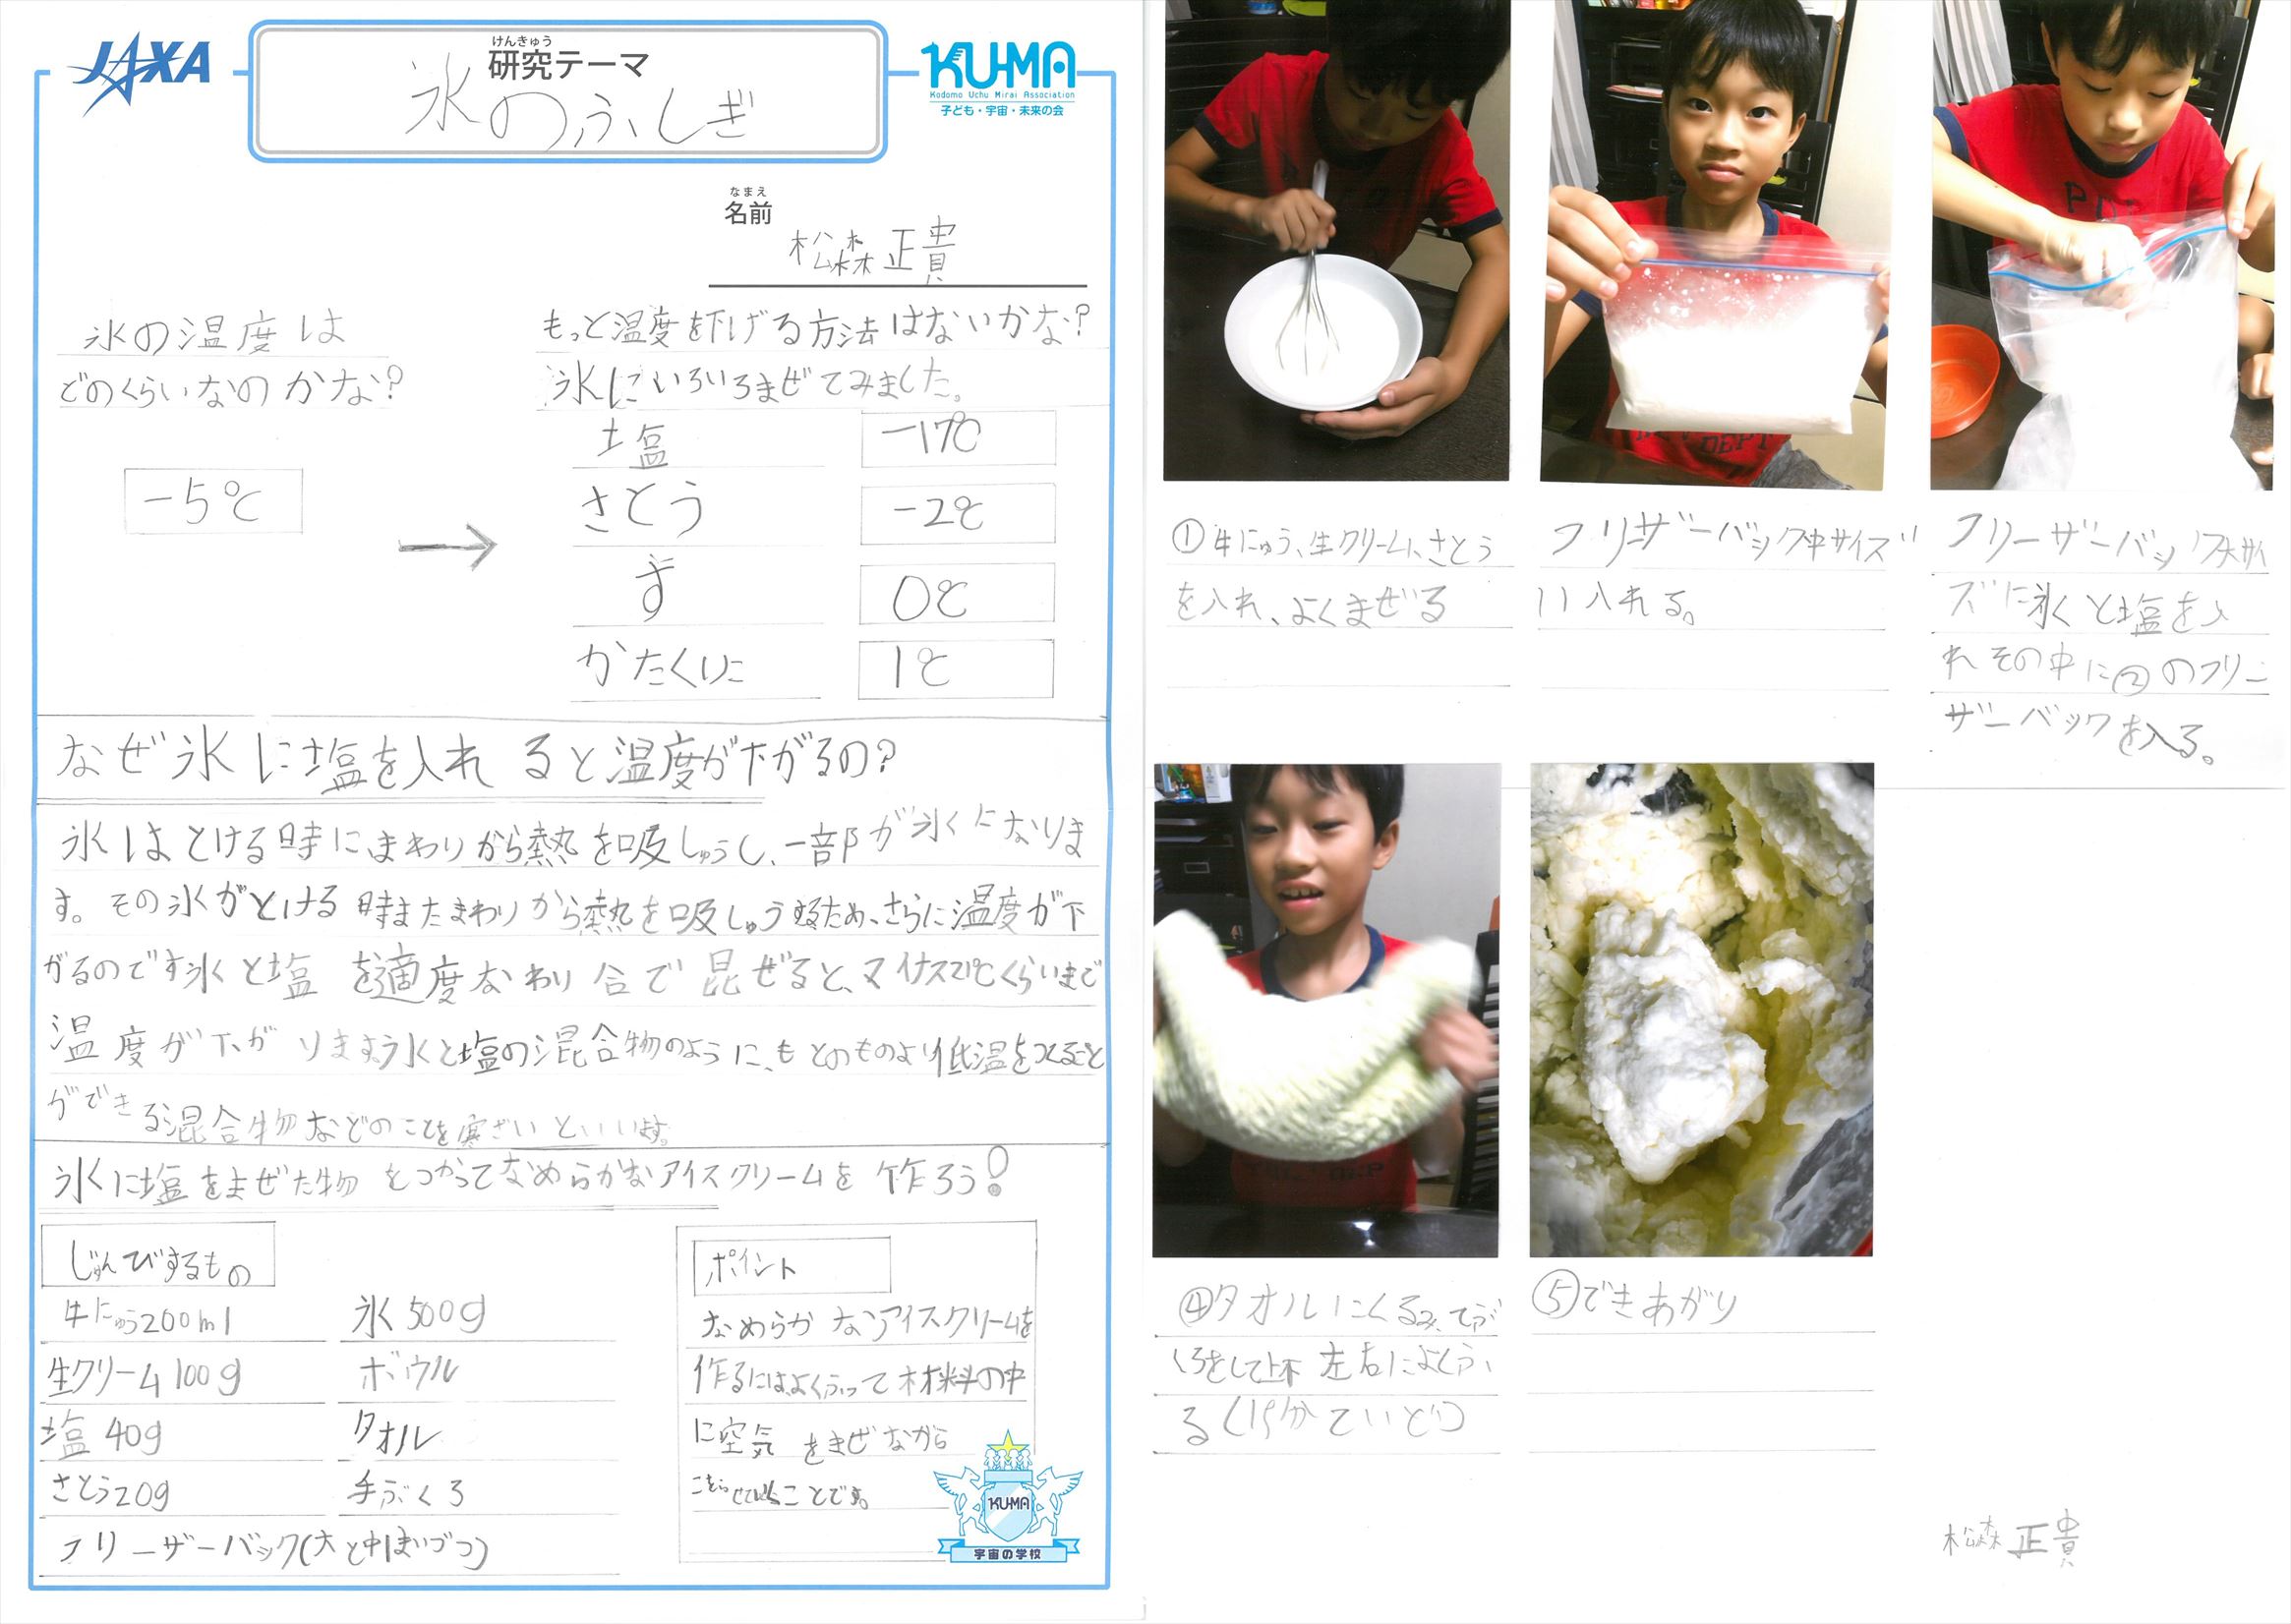 JAXA
けんきゅう
研究テーマ
氷のふしぎ
KU-MA
Kodomo Uchu Mirai Association
子ども・宇宙・未来の会
なまえ
名前
松森正貴
氷の温度は
どのくらいなのかな?
-5℃
もっと温度を下げる方法はないかな?
氷にいろいろまぜてみました。
塩 -17℃
さとう -2℃
す 0℃
かたくりこ 1℃
なぜ氷に塩を入れると温度が下がるの?
氷はとける時にまわりから熱を吸しゅうし、一部が氷になりま
す。その氷がとける時またまわりから熱を吸しゅうするため、さらに温度が下
がるのです氷と塩を適度なわり合で混ぜると、マイナス21℃くらいまで
温度が下がります氷と塩の混合物のように、もとのものより低温をつくること
ができる混合物などのことを寒ざいといいます。
氷に塩をまぜた物をつかってなめらかなアイスクリームを作ろう!
じゅんびするもの
牛にゅう200ml 氷500g
生クリーム100g ボウル
塩40g タオル
さとう20g 手ぶくろ
フリーザーバック(大と中1まいづつ)
ポイント
なめらかなアイスクリームを
作るには、よくふって材料の中
に空気をまぜながら
ことです。
KU-MA
宇宙の学校
①牛にゅう、生クリーム、さとう
を入れ、よくまぜる
フリーザーバック中サイズ
に入れる。
フリーザーバック大サイ
ズに氷と塩を入
れその中に②のフリー
ザーバックを入る。
④タオルにくるみ、てぶ
くろをして上下左右によくふ
る(15分ていど)
⑤できあがり
松森正貴